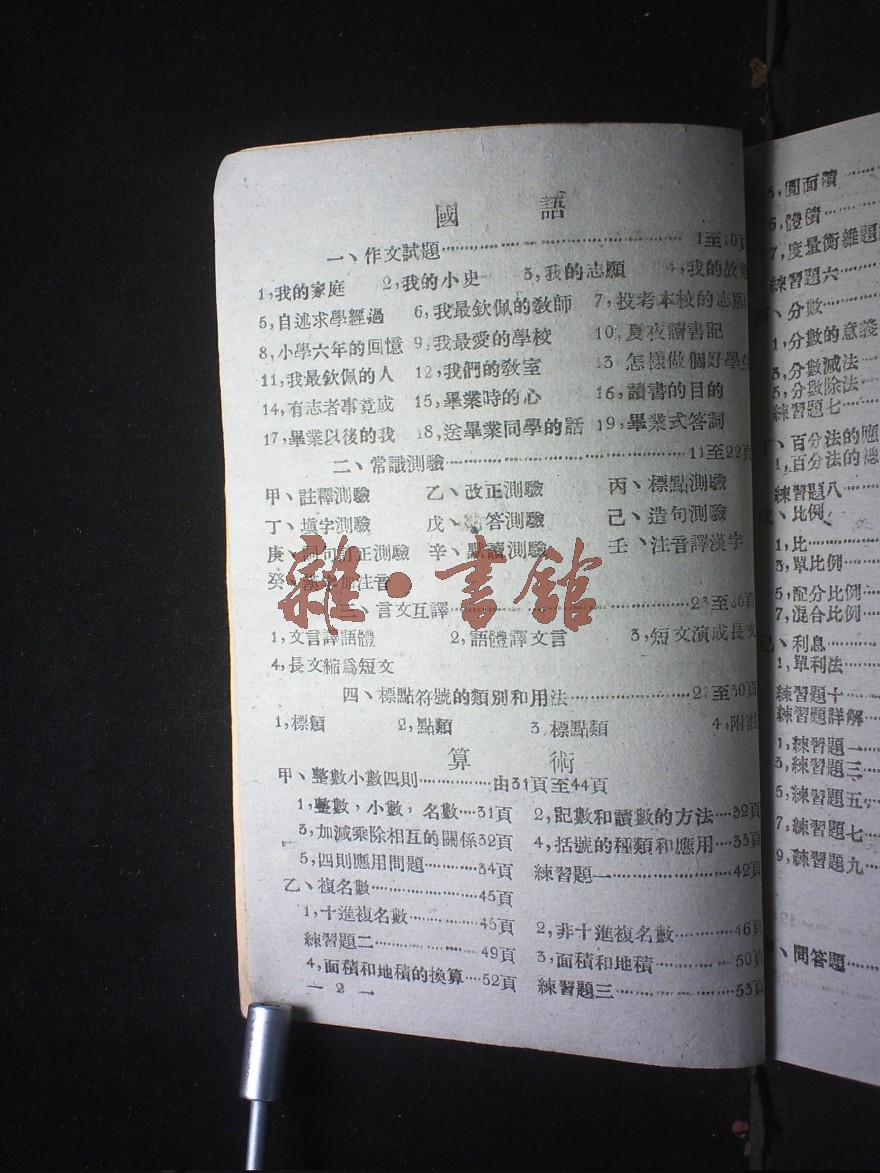 國語
一、作文試題…………1至10頁
1,我的家庭 2,我的小史 3,我的志願 4,我的故
5,自述求學經過 6,我最欽佩的教師 7,投考本校的志願
8,小學六年的回憶 9,我最愛的學校 10,夏夜讀書記
11,我最欽佩的人 12,我們的教室 13,怎樣做個好學生
14,有志者事竟成 15,畢業時的心 16,讀書的目的
17,畢業以後的我 18,送畢業同學的話 19,畢業式答詞
二、常識測驗…………11至22頁
甲、註釋測驗 乙、改正測驗 丙、標點測驗
丁、填字測驗 戊、答測驗 己、造句測驗
庚、詞句訂正測驗 辛、點讀測驗 壬、注音譯漢字
癸、注音
三、言文互譯…………23至26頁
1,文言譯語體 2,語體譯文言 3,短文演成長文
4,長文縮爲短文
四、標點符號的類別和用法…………27至30頁
1,標類 2,點類 3,標點類 4,附註
算術
甲、整數小數四則…………由31頁至44頁
1,整數,小數,名數…31頁 2,記數和讀數的方法…32頁
3,加減乘除相互的關係32頁 4,括號的種類和應用…33頁
5,四則應用問題………34頁 練習題一…………42頁
乙、複名數…………45頁
1,十進複名數………45頁 2,非十進複名數………46頁
練習題二…………49頁 3,面積和地積………50頁
4,面積和地積的換算…52頁 練習題三…………53頁
一 2 一
雜·書館
5,圓面積
6,體積
7,度量衡雜題
練習題六
丙、分數
1,分數的意義
3,分數減法
5,分數除法
練習題七
丁、百分法的應
1,百分法的總
練習題八
戊、比例
1,比
3,單比例
5,配分比例
7,混合比例
己、利息
1,單利法
練習題十
練習題詳解
1,練習題一
3,練習題三
5,練習題五
7,練習題七
9,練習題九
、問答題